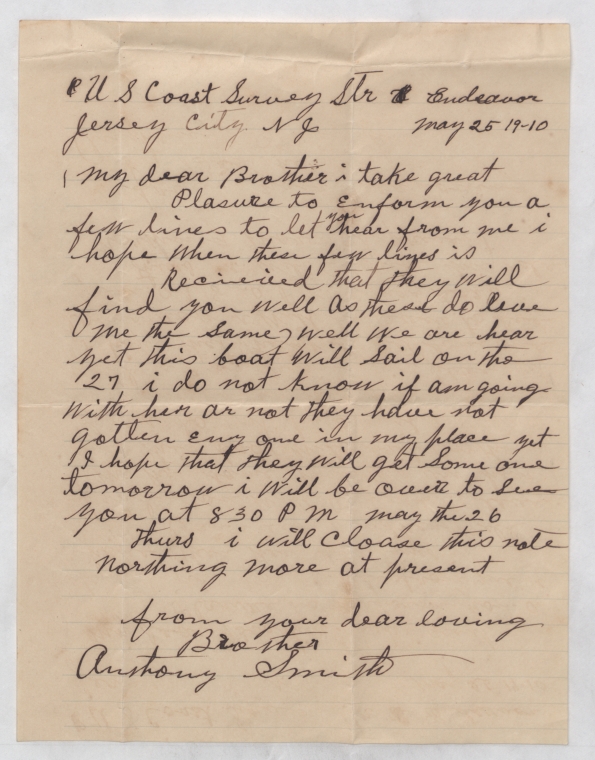 U S Coast Survey Str Endeavor
Jersey City N J May 25 19-10
My dear Brother i take great
Plasure to Enform you a
few lines to let you hear from me i
hope when these few lines is
Recieveied that they will
find you well as these do leave
me the same, well we are hear
yet this boat will sail on the
27 i do not know if am going
with her or not they have not
gotten eny one in my place yet
I hope that they will get some one
tomorrow i will be over to see
you at 830 P M may the 26
thurs i will cloase this note
northing more at present
from your dear loving
Brother
Anthony Smith